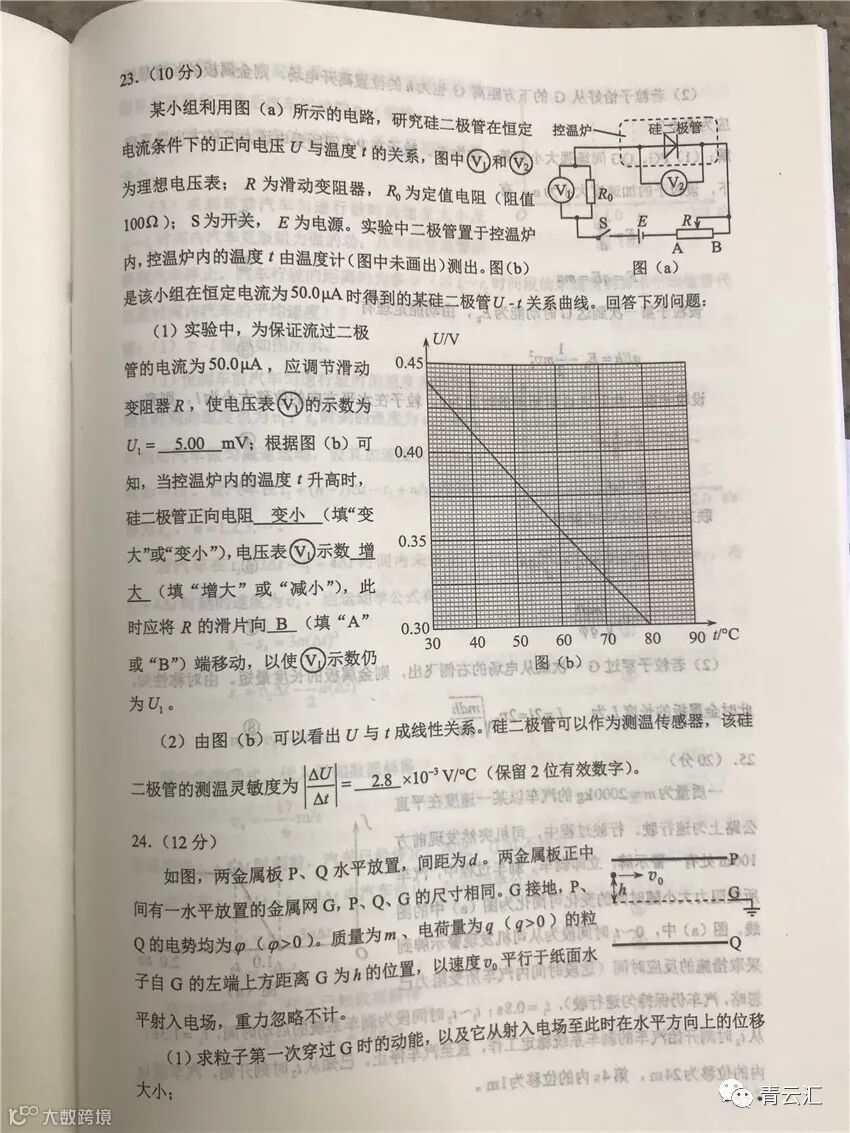 23．（10分）
某小组利用图（a）所示的电路，研究硅二极管在恒定
电流条件下的正向电压U与温度t的关系，图中V₁和V₂
为理想电压表；R为滑动变阻器，R₀为定值电阻（阻值
100Ω）；S为开关，E为电源。实验中二极管置于控温炉
内，控温炉内的温度t由温度计（图中未画出）测出。图（b）
是该小组在恒定电流为50.0μA时得到的某硅二极管U-t关系曲线。回答下列问题：
控温炉 硅二极管
V₁ R₀ V₂
S E R
A B
图（a）
（1）实验中，为保证流过二极
管的电流为50.0μA，应调节滑动
变阻器R，使电压表V₁的示数为
U₁= 5.00 mV；根据图（b）可
知，当控温炉内的温度t升高时，
硅二极管正向电阻 变小 （填“变
大”或“变小”），电压表V₁示数 增
大 （填“增大”或“减小”），此
时应将R的滑片向 B （填“A”
或“B”）端移动，以使V₁示数仍
为U₁。
U/V
0.45
0.40
0.35
0.30
30 40 50 60 70 80 90 t/°C
图（b）
（2）由图（b）可以看出U与t成线性关系。硅二极管可以作为测温传感器，该硅
二极管的测温灵敏度为|ΔU/Δt|= 2.8 ×10⁻³ V/°C（保留2位有效数字）。
24．（12分）
如图，两金属板P、Q水平放置，间距为d。两金属板正中
间有一水平放置的金属网G，P、Q、G的尺寸相同。G接地，P、
Q的电势均为φ（φ>0）。质量为m、电荷量为q（q>0）的粒
子自G的左端上方距离G为h的位置，以速度v₀平行于纸面水
平射入电场，重力忽略不计。
P
v₀
h
G
Q
（1）求粒子第一次穿过G时的动能，以及它从射入电场至此时在水平方向上的位移
大小；
大数跨境
青云汇